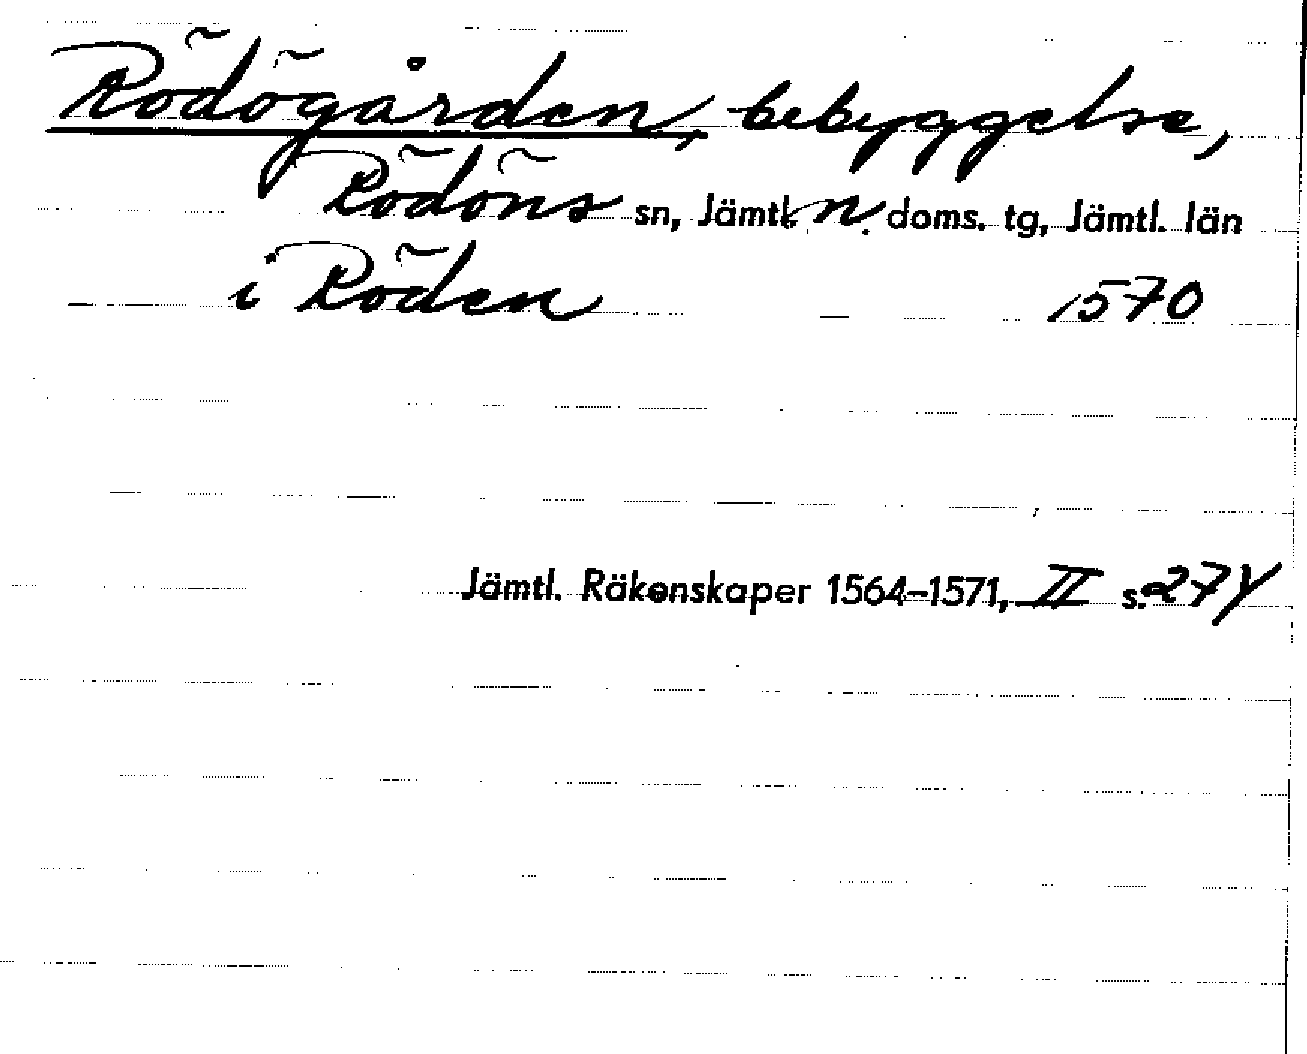 Rödögården, bebyggelse,
Rödöns sn, Jämtl. n. doms. tg, Jämtl. län
i Röden 1570
Jämtl. Räkenskaper 1564–1571, II s. 274